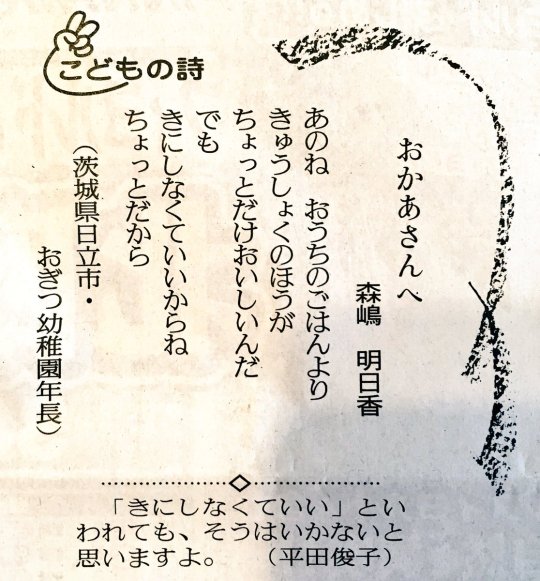 こどもの詩
おかあさんへ
森嶋　明日香
あのね　おうちのごはんより
きゅうしょくのほうが
ちょっとだけおいしいんだ
でも
きにしなくていいからね
ちょっとだから
（茨城県日立市・
おぎつ幼稚園年長）
「きにしなくていい」とい
われても、そうはいかないと
思いますよ。　（平田俊子）